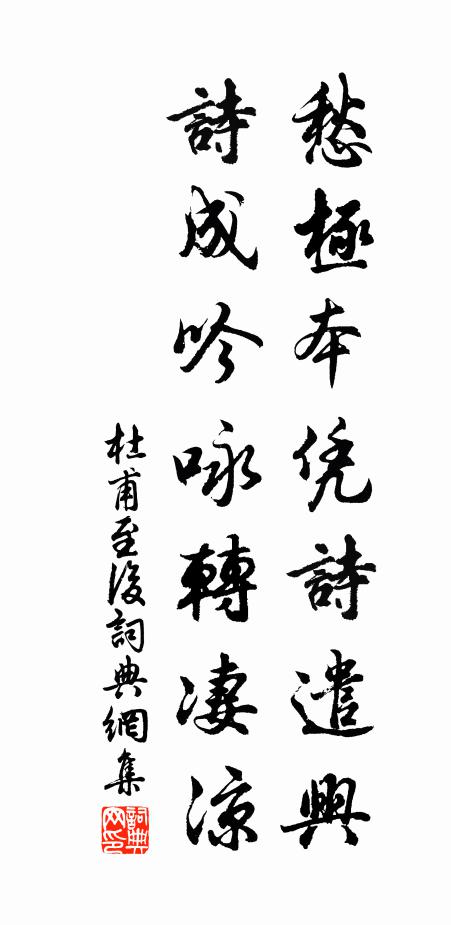 愁極本凭詩遣興
詩成吟咏轉淒涼
杜甫至後詞典網集
詞典网印